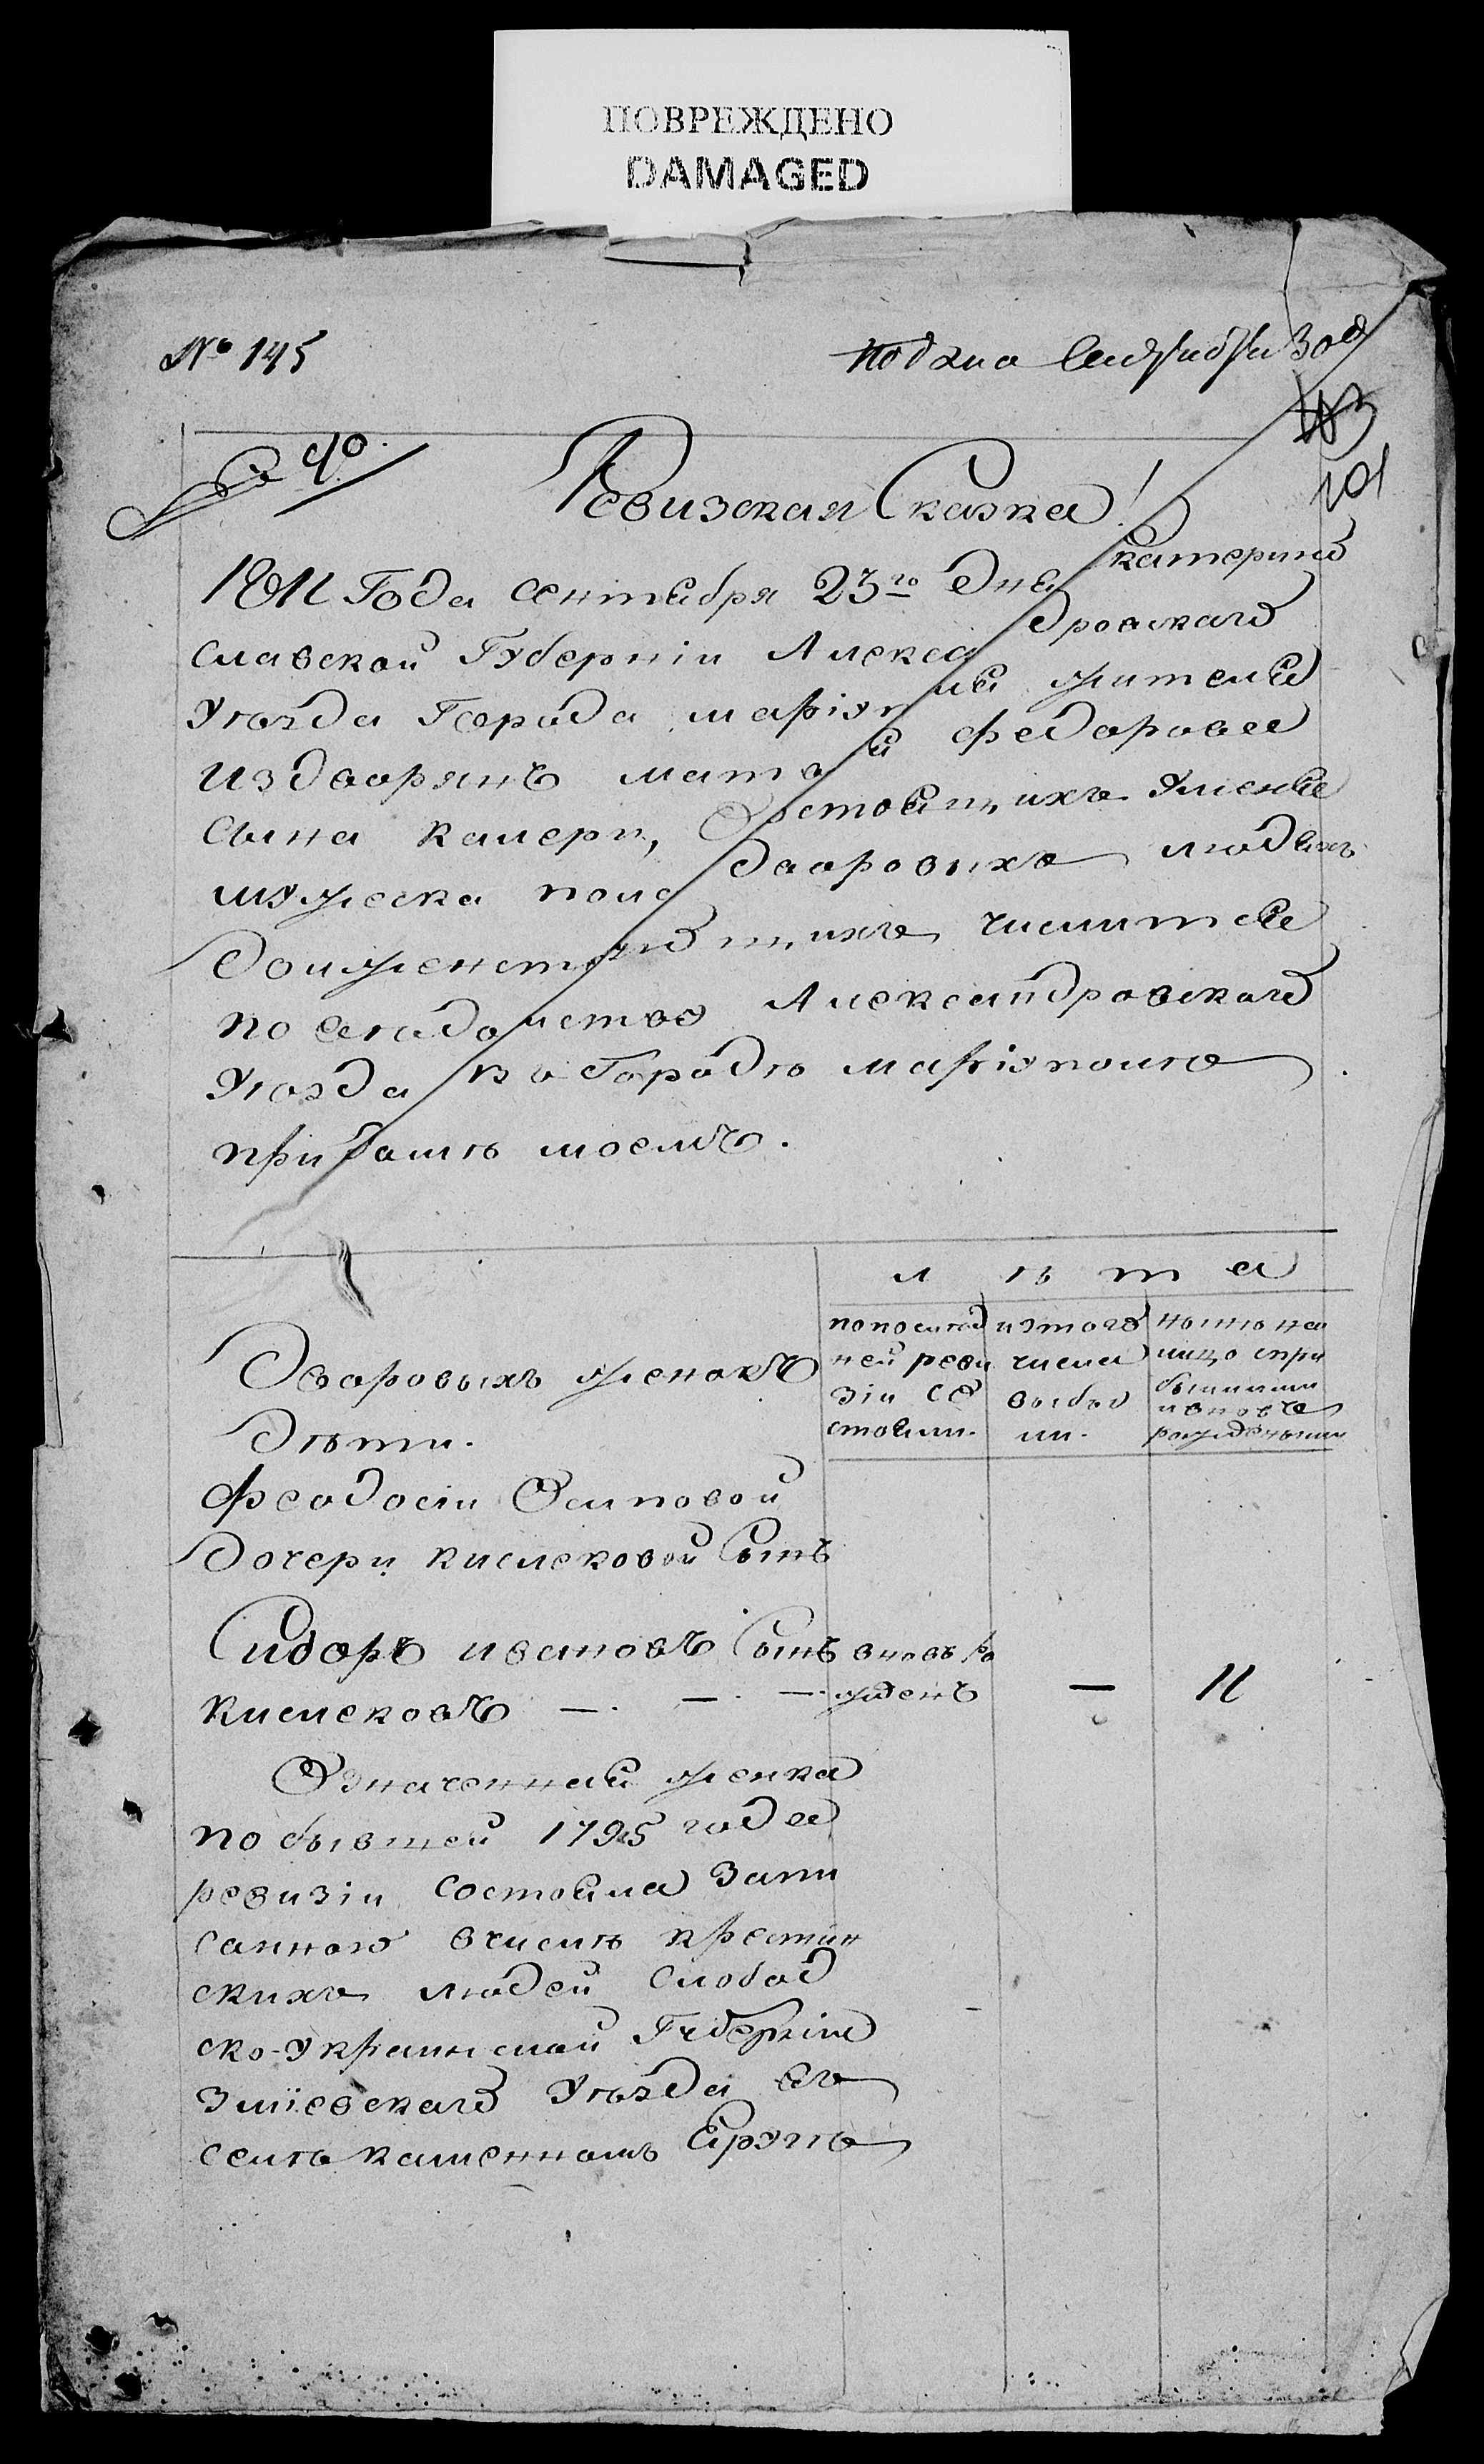 ПОВРЕЖДЕНО
DAMAGED
№ 145
Подана Сентября 30д
103
101
№ 40.
Ревизская Сказка!
1811 Года сентября 23го Дня Катерино
славской Губерніи Алексадровскаго
Уѣзда Города маріупля жителя
Из дворянъ матвѣй федорова
Сына Калери, Состоящихъ Уменя
мужеска пола дворовыхъ людяхъ
по Александровскаго
Уѣзда въ Городѣ маріуполѣ
при домѣ моемъ.
л ѣ т а
попослед
ней реви
зіи со
стояли.
изтого
числа
выбы
ли.
нынѣ на
лицо спри
былыми
ивновь
рожденными
Дворовыхъ женокъ
Дѣти.
Феодосіи Осиповой
Дочери кисляковой Сынъ
Сидоръ ивановъ Сынъ
кисляковъ —. —. —.
вновь ро
жденъ
—
11
Означенная женка
по бывшей 1795 года
ревизіи состояла запи
санною вчислѣ крестян
скихъ людей Слобод
ско-украинской Губерніи
Зміевскаго Уѣзда въ
селѣ каменномъ Яругѣ